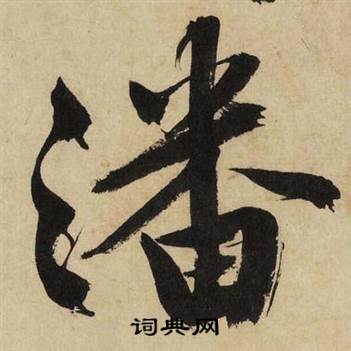 潘
词典网